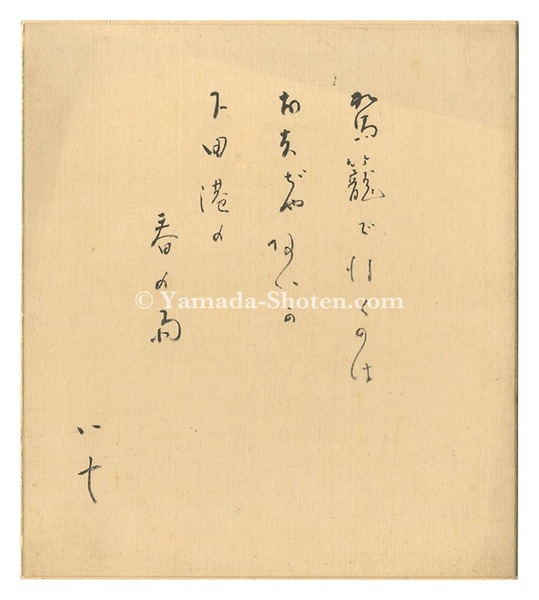 駕籠で行くのは
お吉ぢやないか
下田港の
春の雨
八十
© Yamada-Shoten.com